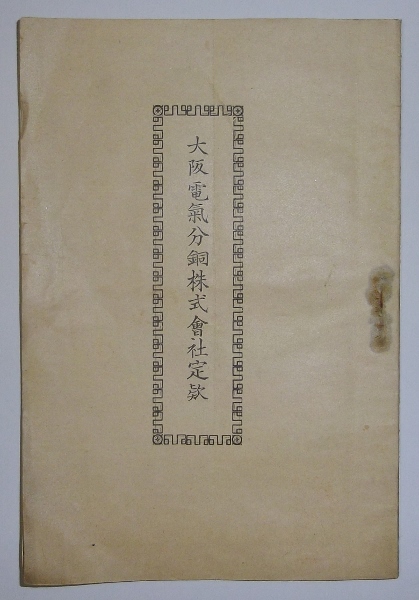 大阪電氣分銅株式會社定欵